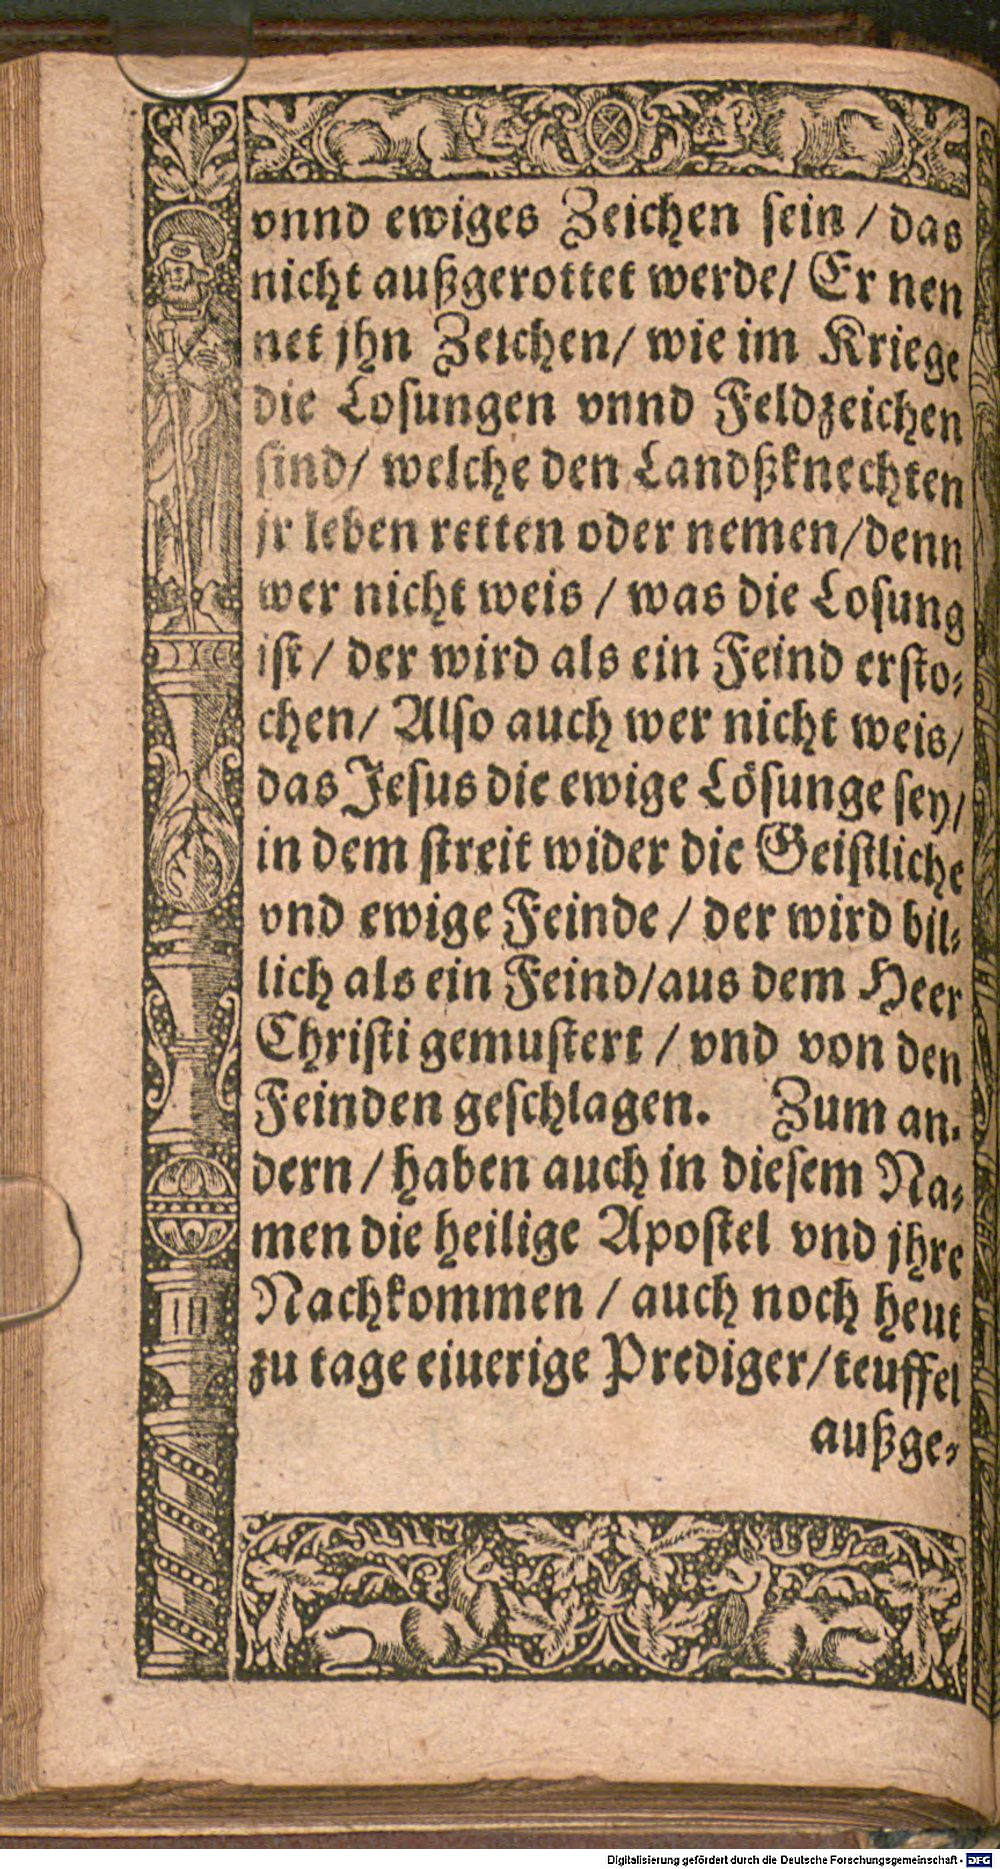 vnnd ewiges Zeichen ſein / das
nicht außgerottet werde/ Er nen
net jhn Zeichen/ wie im Kriege
die Loſungen vnnd Feldzeichen
ſind/ welche den Landßknechten
jr leben retten oder nemen/denn
wer nicht weis / was die Loſung
iſt/ der wird als ein Feind erſto⸗
chen/ Alſo auch wer nicht weis/
das Jeſus die ewige Löſunge ſey/
in dem ſtreit wider die Geiſtliche
vnd ewige Feinde / der wird bil⸗
lich als ein Feind/aus dem Heer
Chriſti gemuſtert / vnd von den
Feinden geſchlagen. Zum an⸗
dern / haben auch in dieſem Na⸗
men die heilige Apoſtel vnd jhre
Nachkommen / auch noch heut
zu tage eiuerige Prediger/teuffel
außge⸗
Digitalisierung gefördert durch die Deutsche Forschungsgemeinschaft - DFG